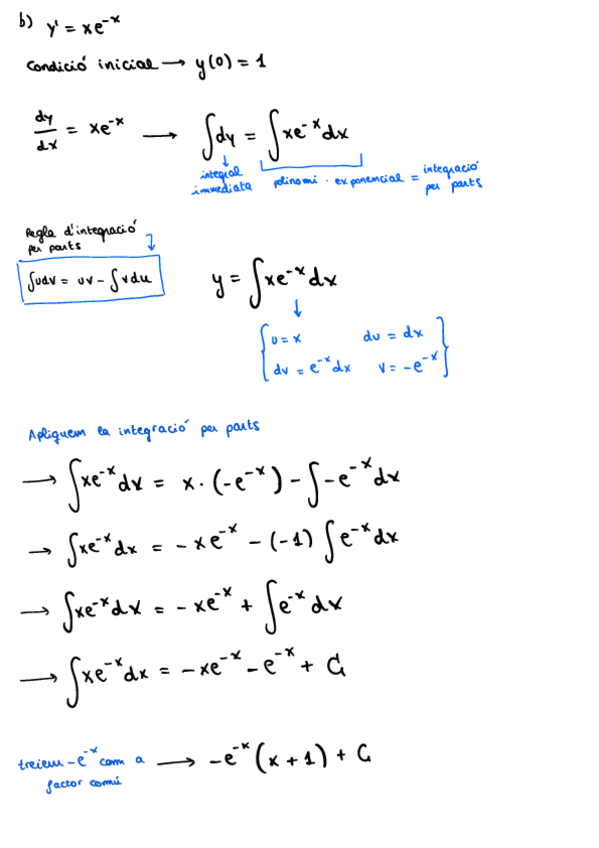 b) y' = xe^-x
Condició inicial → y(0) = 1
dy/dx = xe^-x → ∫dy = ∫xe^-x dx
↓
integral immediata
polinomi · exponencial = integració per parts
Regla d'integració per parts
∫udv = uv - ∫vdu
y = ∫xe^-x dx
↓
u = x du = dx
dv = e^-x dx v = -e^-x
Apliquem la integració per parts
→ ∫xe^-x dx = x · (-e^-x) - ∫-e^-x dx
→ ∫xe^-x dx = -xe^-x - (-1) ∫e^-x dx
→ ∫xe^-x dx = -xe^-x + ∫e^-x dx
→ ∫xe^-x dx = -xe^-x - e^-x + C
treiem -e^-x com a factor comú → -e^-x (x + 1) + C